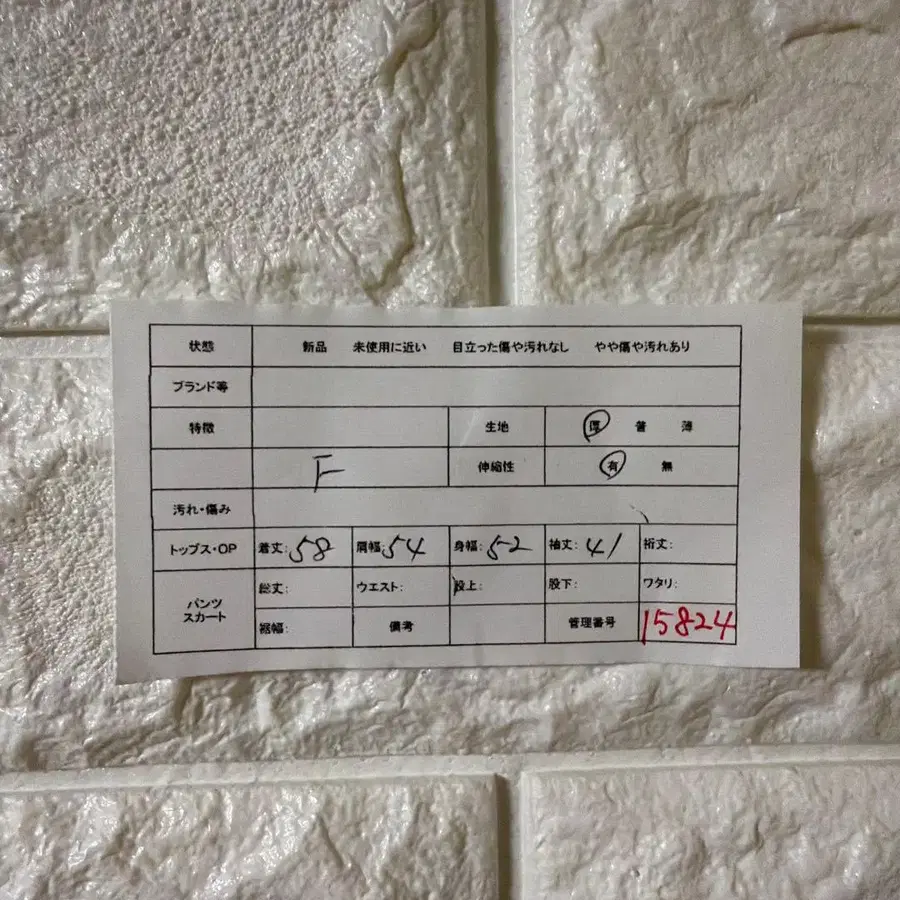 状態 新品 未使用に近い 目立った傷や汚れなし やや傷や汚れあり
ブランド等
特徴 生地 厚 普 薄
F 伸縮性 有 無
汚れ・傷み
トップス・OP 着丈:58 肩幅:54 身幅:52 袖丈:41 裄丈:
パンツ スカート
総丈: ウエスト: 股上: 股下: ワタリ:
裾幅: 備考 管理番号 15824